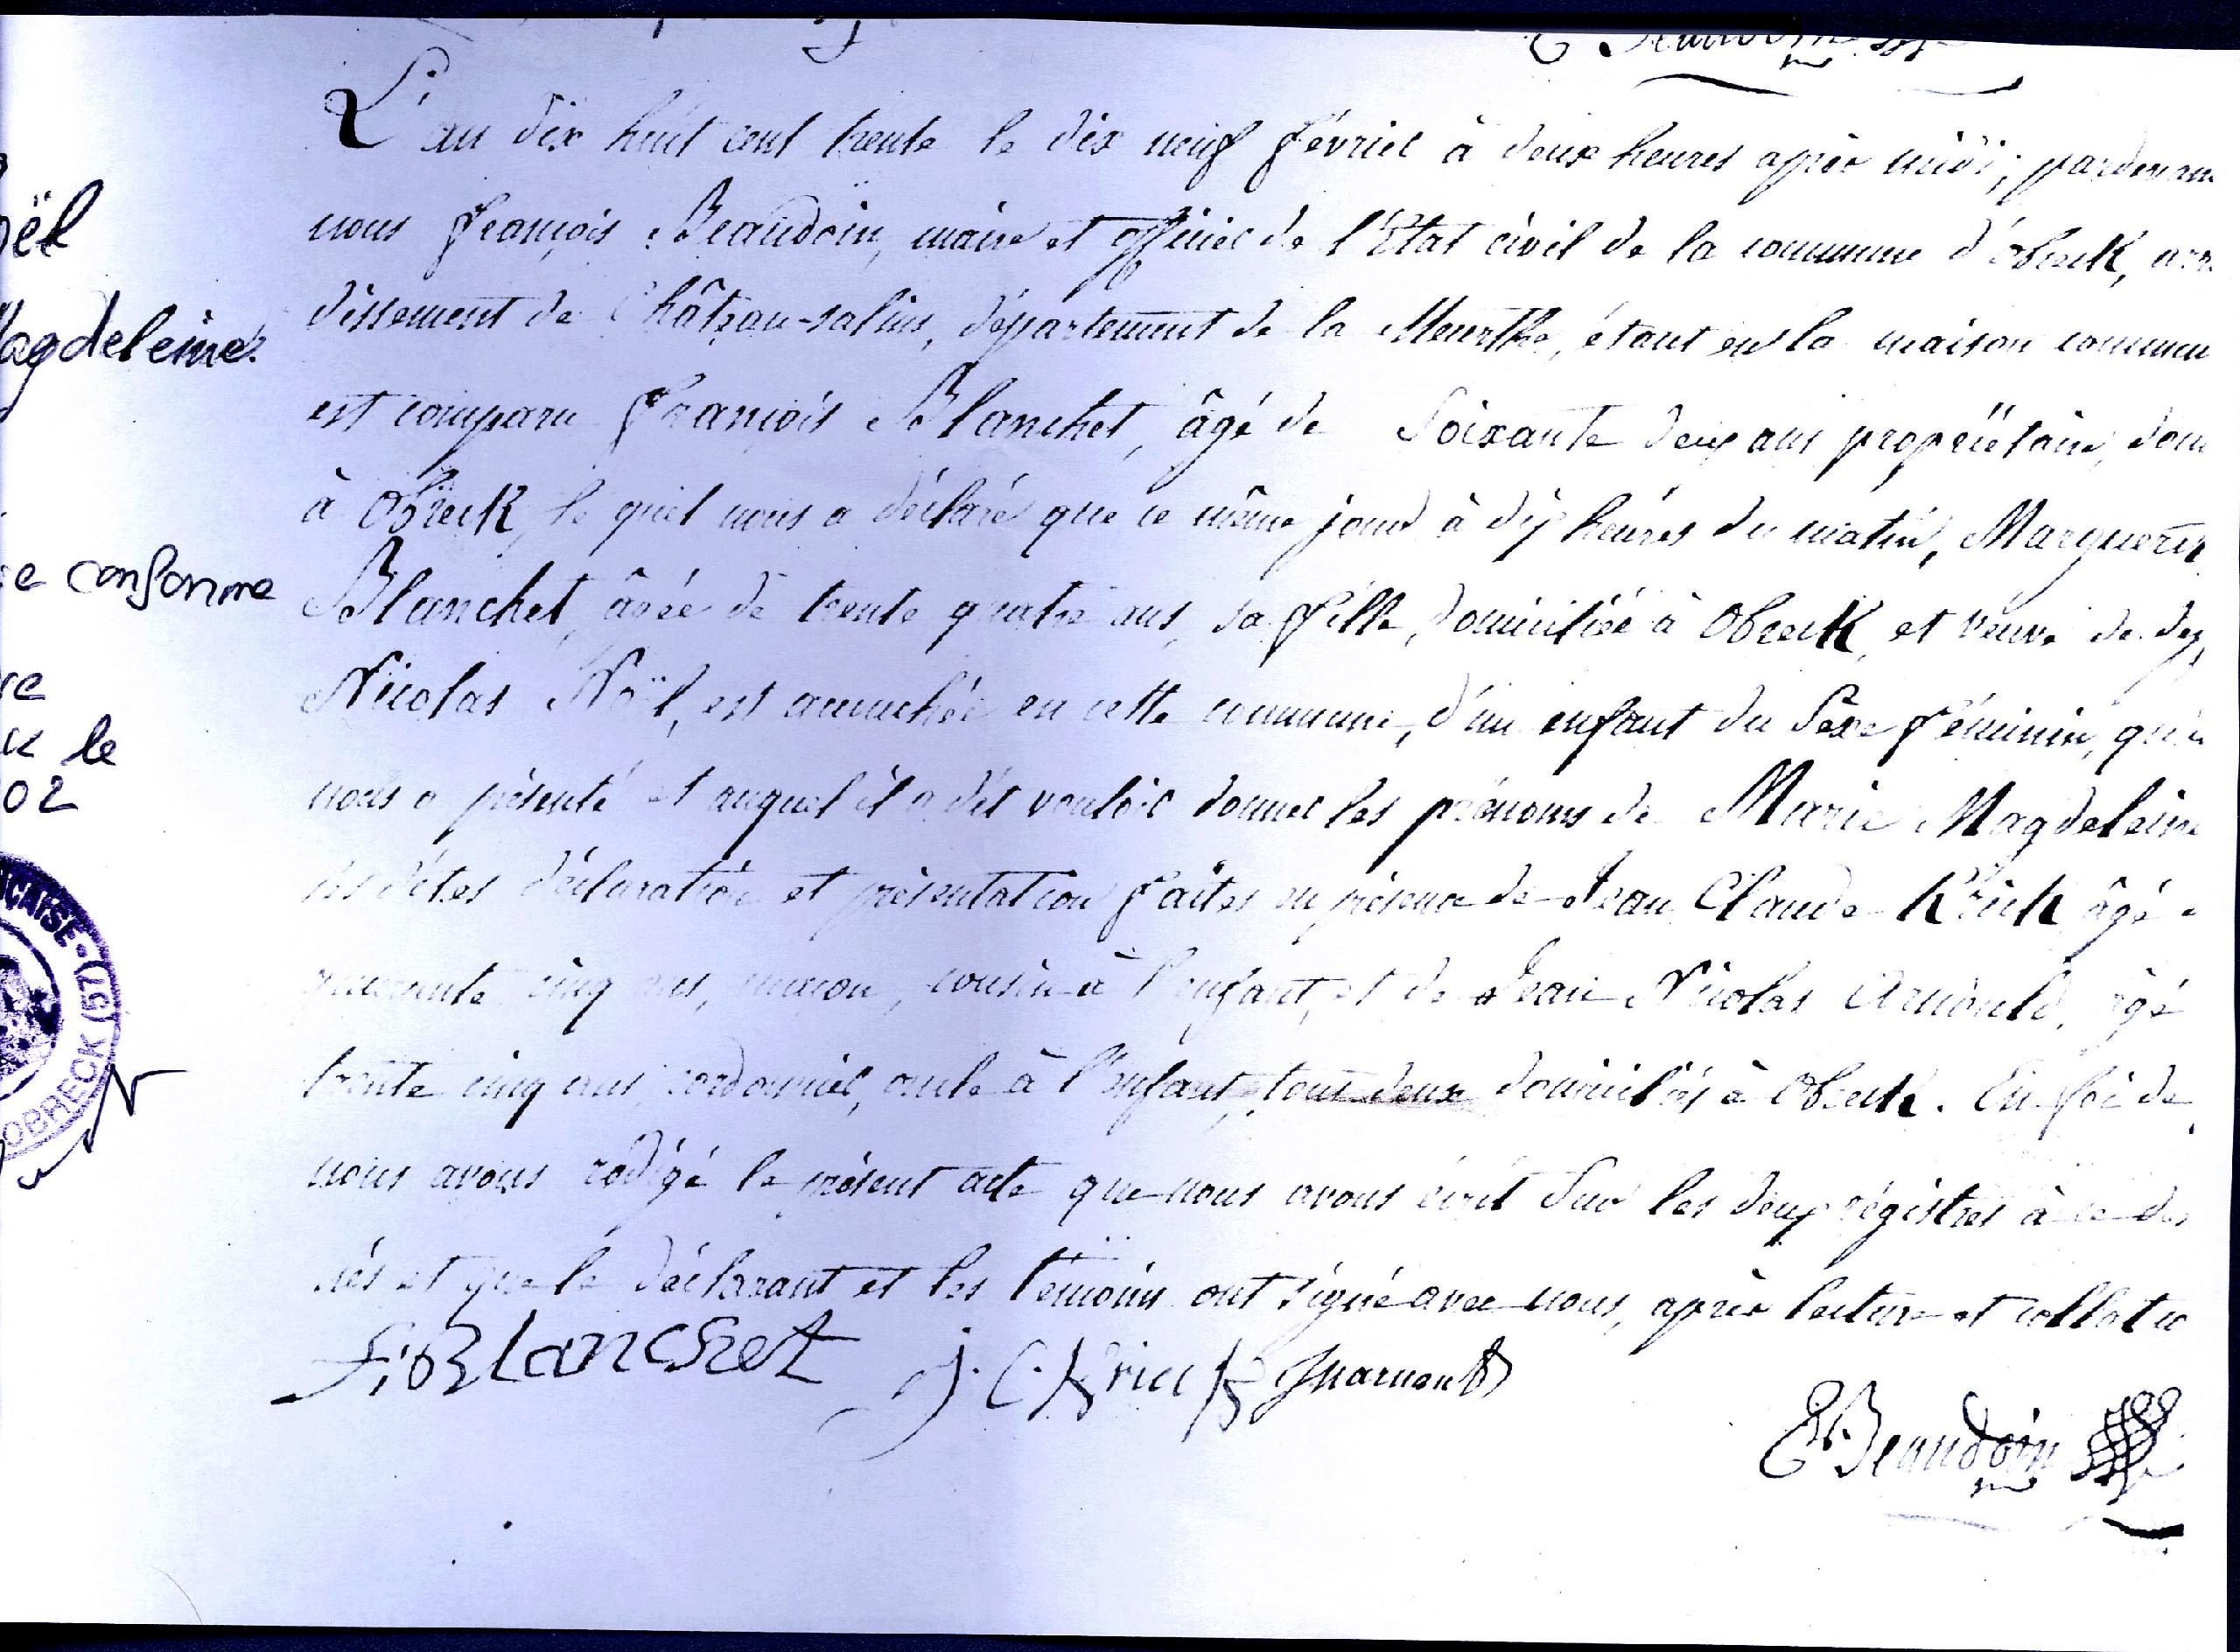 Beaudoin
L'an dix huit cent trente le dix neuf février à deux heures après midi; pardevan
nous françois Beaudoin, maire et officier de l'Etat civil de la commune d'obreck, arr
dissement de Château-salins, département de la Meurthe, étant en la maison commun
est comparu françois Blanchet, âgé de Soixante deux ans propriétaire, dom
à Obreck, le quel nous a déclaré que ce même jour à dix heures du matin, Marguerit
Blanchet, âgée de trente quatre ans, sa fille, domiciliée à Obreck, et veuve de
Nicolas Noël, est accouchée en cette commune, d'un enfant du Sexe féminin, qu'
nous a présenté et auquel il a dit vouloir donner les prénoms de Marie Magdeleine
les dites déclaration et présentation faites en présence de Jean Claude Krick âgé
cinq ans, cousin à l'enfant, et de Jean Nicolas Arnould, âgé
trente cinq ans, cordonnier, oncle à l'enfant, tous deux domiciliés à Obreck. En foi de
nous avons rédigé le présent acte que nous avons écrit Sur les deux régistres à ce des
nés et que le déclarant et les témoins ont signé avec nous, après lecture et collatio
F. Blanchet J. C. Krick
Beaudoin
ël
agdeleine
e conforme
re
le
02
NÇAISE - (57)
OBRECK